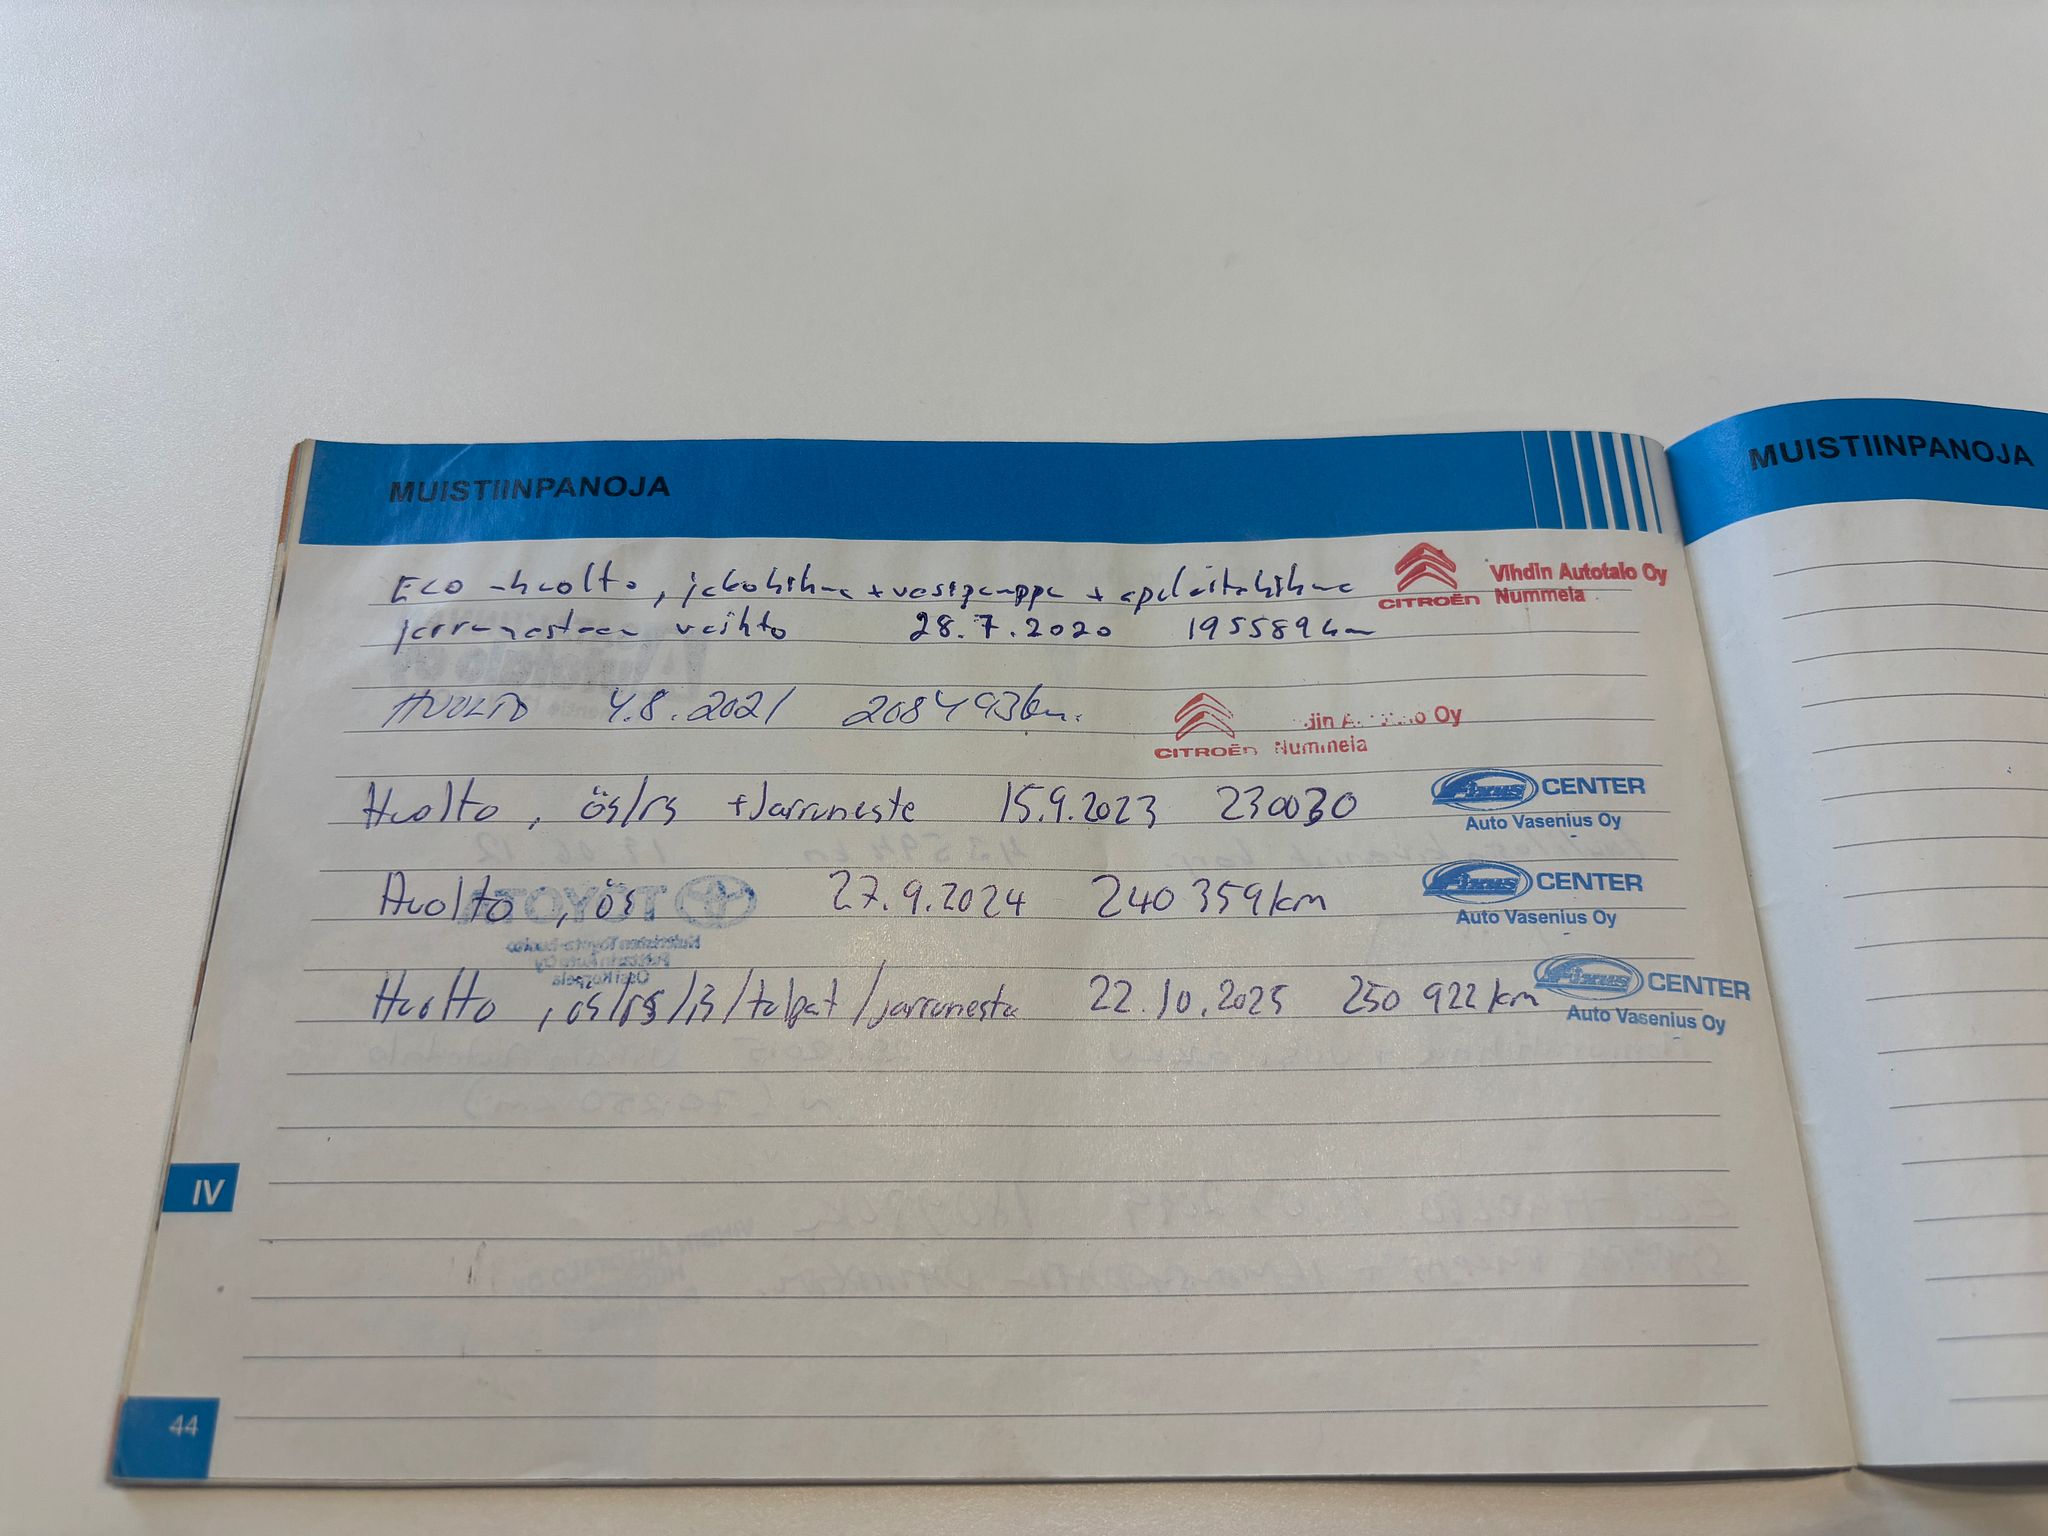 MUISTIINPANOJA
MUISTIINPANOJA
Eco-huolto, jakohihna + vesipumppu + apulaitehihna
CITROËN Vihdin Autotalo Oy
Nummela
jarrunesteen vaihto 28.7.2020 195589 km
HUOLTO 4.8.2021 208493 km.
CITROËN Oy
Nummela
Huolto, ös/rs + Jarruneste 15.9.2023 230030
Fixus CENTER
Auto Vasenius Oy
Huolto, ös 27.9.2024 240 359 km
Fixus CENTER
Auto Vasenius Oy
Huolto, ös/rs/is/tulpat/jarruneste 22.10.2025 250 922 km
Fixus CENTER
Auto Vasenius Oy
IV
44